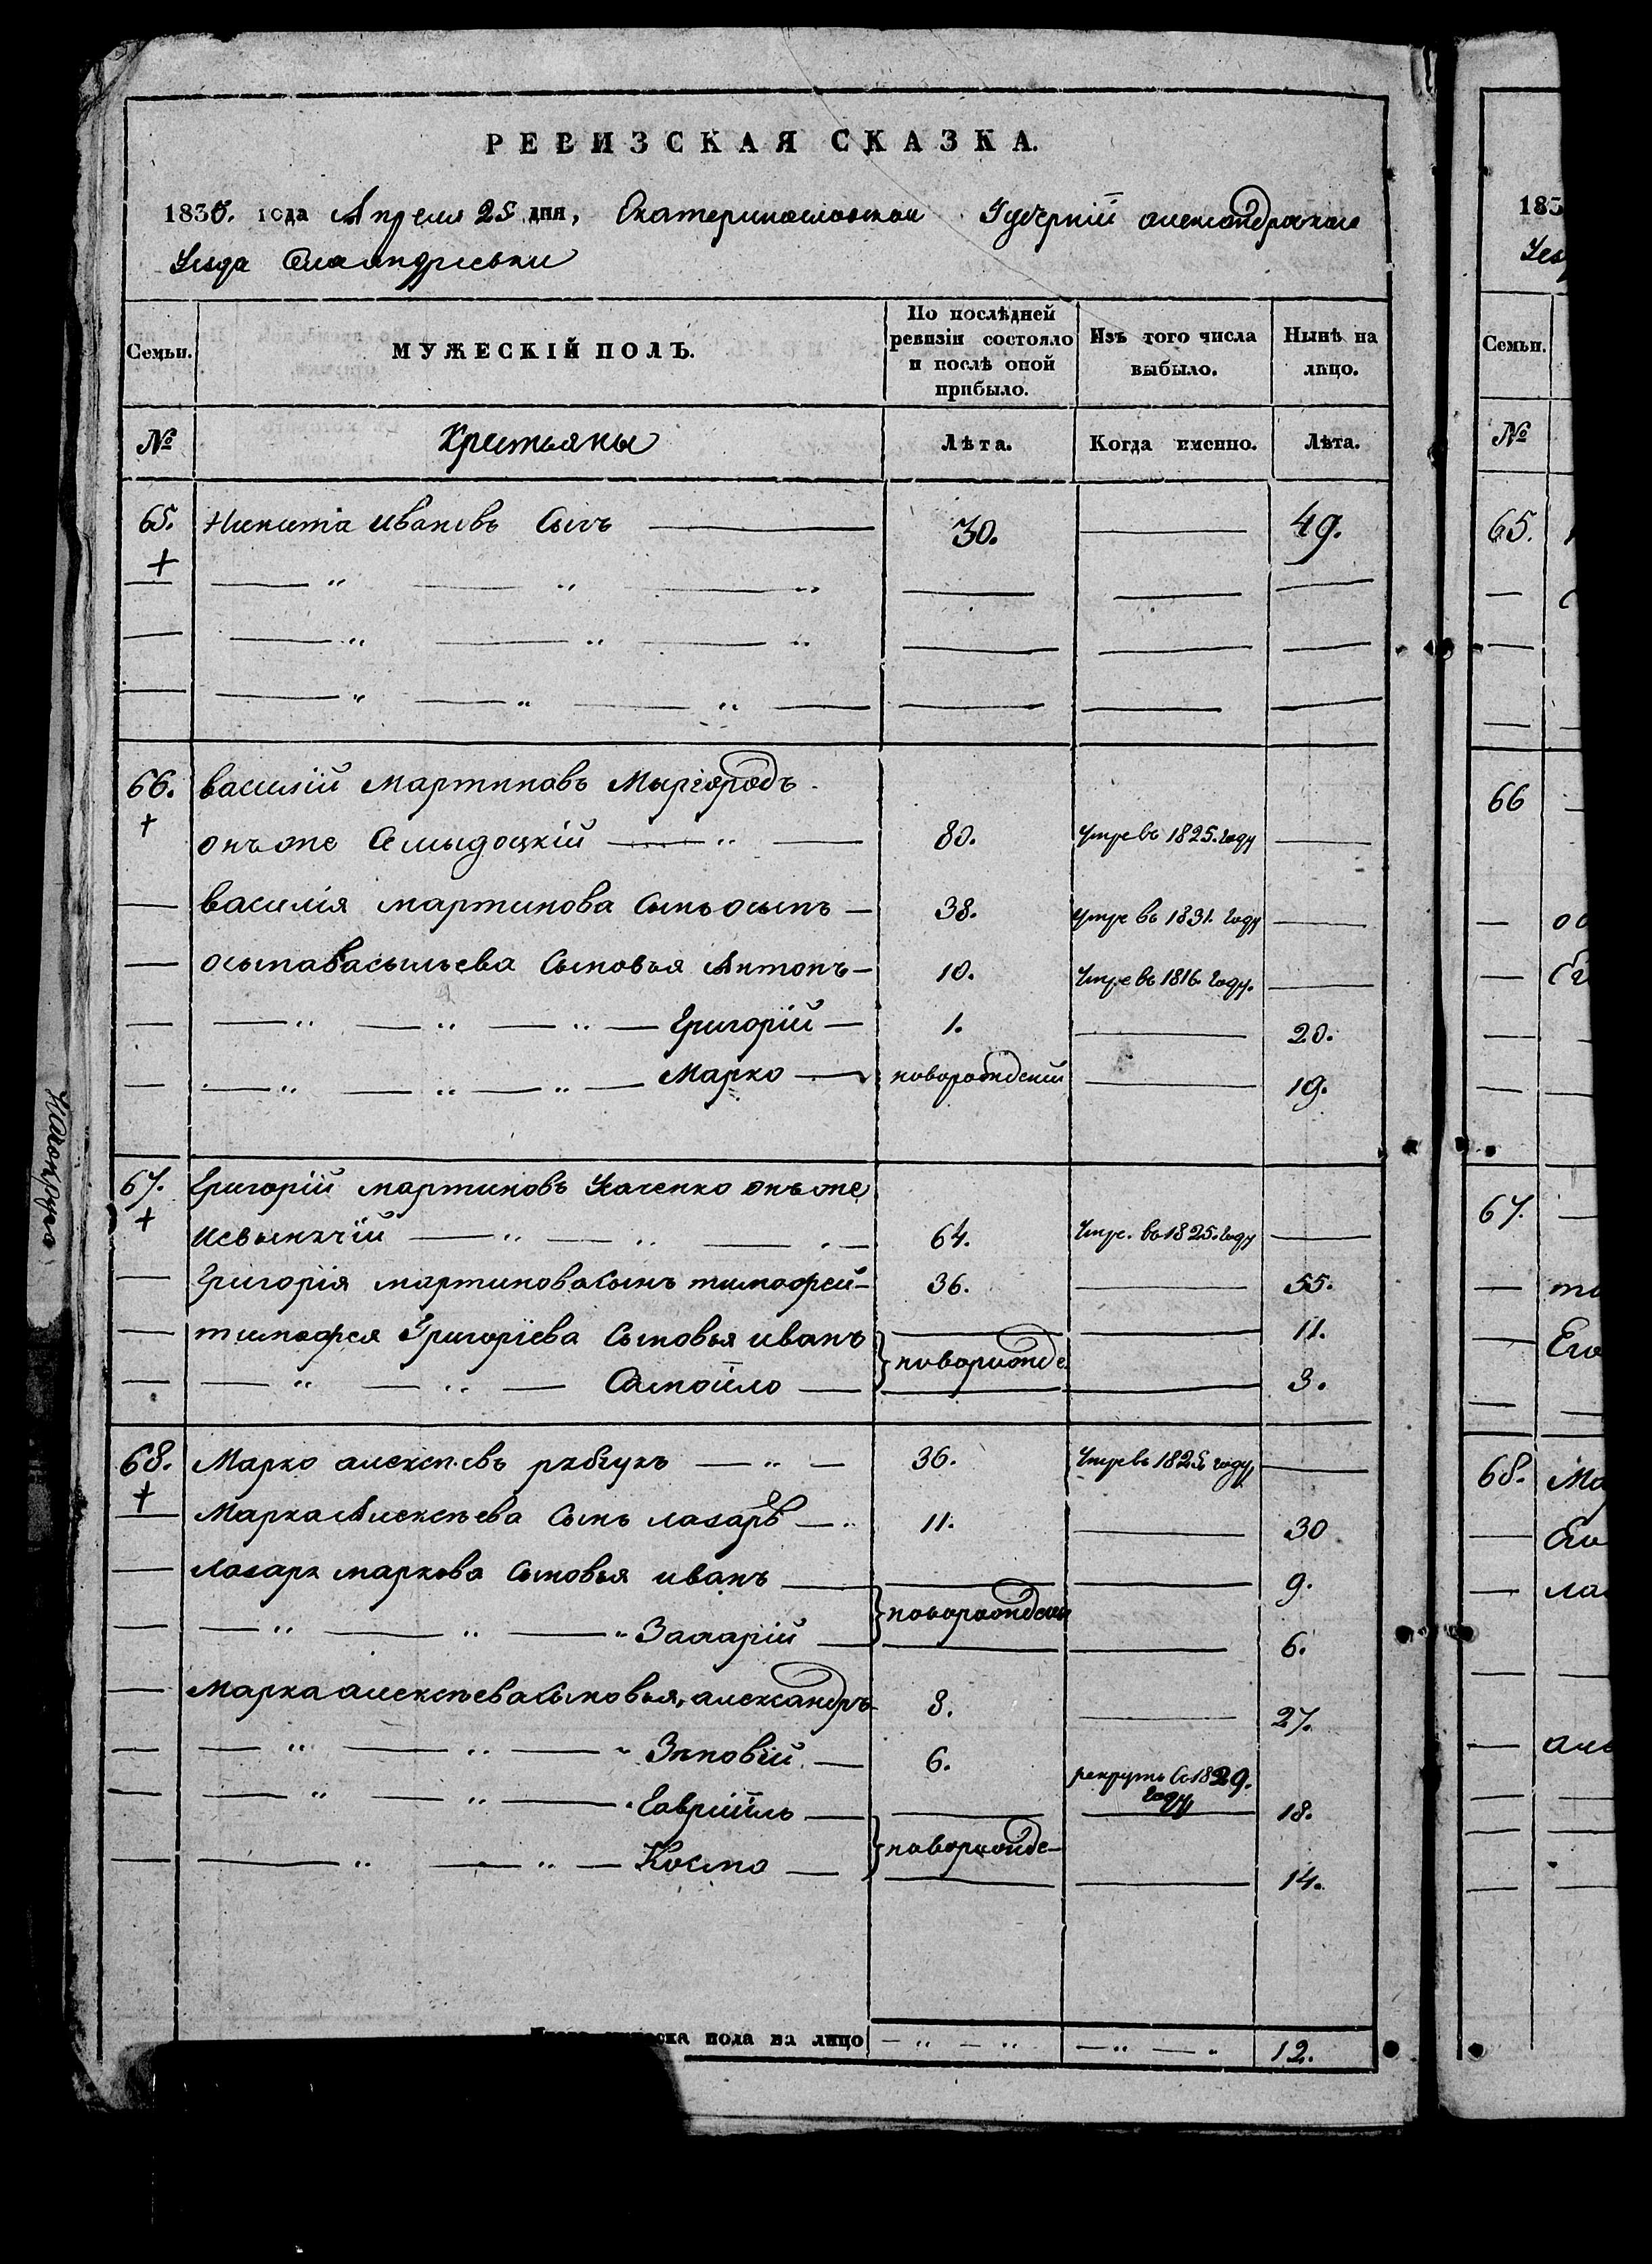 РЕВИЗСКАЯ СКАЗКА.
1835. года Апреля 25 дня, Екатеринославской Губернїи александровскаго
Уезда Села андреевки
Семьи. МУЖЕСКІЙ ПОЛЪ. По послѣдней ревизіи состояло и послѣ оной прибыло. Изъ того числа выбыло. Нынѣ на лицо.
№ Крестьяны Лѣта. Когда именно. Лѣта.
65. Никита ивановъ Сычъ 30. 49.
66. василій мартиновъ Миргородъ
онъ же 80. умре въ 1825. году
василія мартинова Сынъ осипъ 38. умре въ 1831. году
осипа васильева Сыновья Антонъ 10. Умре въ 1816. году.
Григорій 1. 20.
Марко новорожденій 19.
67. Григорій мартиновъ онъ же
64. Умре. въ 1825. году
Григорія мартинова Сынъ тимофей 36. 55.
тимофея Григорїева Сыновья иванъ 11.
новорожде
Самойло 3.
68. Марко алексѣевъ рябчукъ 36. Умре въ 1825 году
Марка Алексѣева Сынъ лазарь 11. 30
Лазаря маркова Сыновья иванъ 9.
новорождены
Захарій 6.
Марка алексѣева Сыновья, александръ 8. 27.
Зиновій 6. рекрутъ въ 1829. году
Гавріилъ 18.
новорожде
Косма 14.
пола на лицо 12.
183
65.
66
67.
68.
Семьи.
№